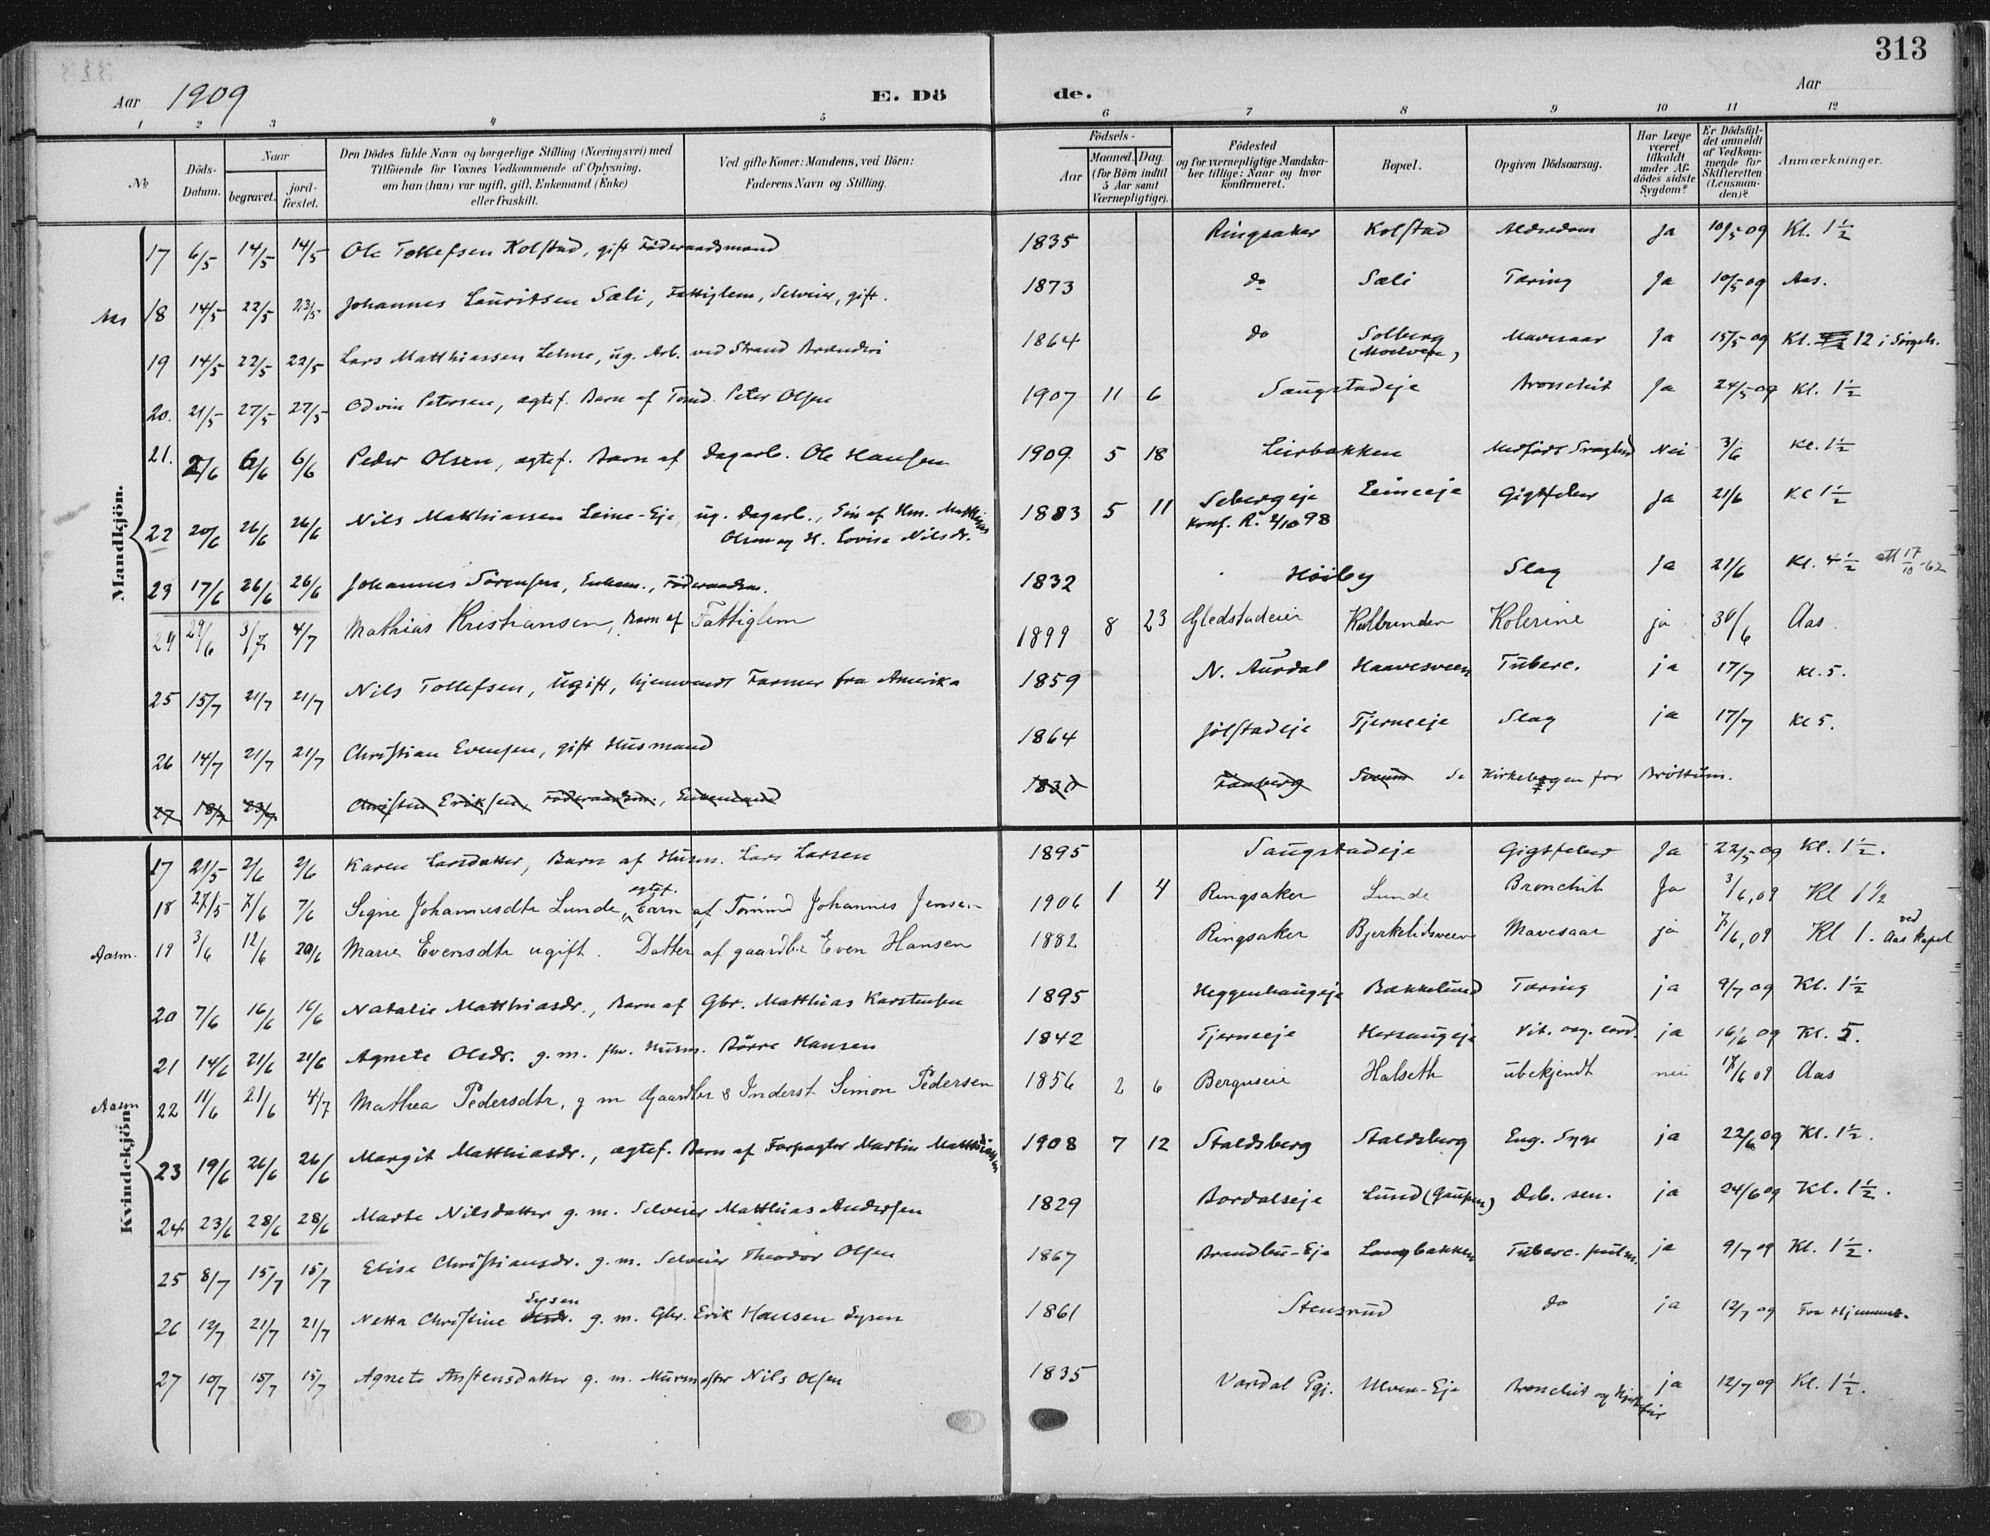 313
Aar 1909 E. Dö de. Aar
1 2 3 4 5 6 7 8 9 10 11 12
No
Döds-Datum.
Naar
begravet.
jord-fæstet.
Den Dödes fulde Navn og borgerlige Stilling (Næringsvei) med
Tilföiende for Voxnes Vedkommende af Oplysning,
om han (hun) var ugift, gift, Enkemand (Enke)
eller fraskilt.
Ved gifte Koner: Mandens, ved Börn:
Faderens Navn og Stilling.
Födsels-
Aar
Maaned. Dag.
(for Börn indtil
5 Aar samt
Værnepligtige).
Födested
og for værnepligtige Mandska-
ber tillige: Naar og hvor
konfirmeret.
Bopæl.
Opgiven Dödsaarsag.
Har Læge
været
tilkaldt
under Af-
dödes sidste
Sygdom?
Er Dödsfal-
det anmeldt
af Vedkom-
mende for
Skifteretten
(Lensman-
den)?
Anmærkninger.
Mandkjön.
17 6/5 14/5 14/5 Ole Tollefsen Kolstad, gift Föderaadsmand 1835 Ringsaker Kolstad Aldredom Ja 10/5 09 Kl. 1 1/2
Aas 18 14/5 22/5 23/5 Johannes Lauritsen Sæli, Fattiglem, Selveier, gift. 1873 do Sæli Tæring Ja 10/5 09 Aas.
19 14/5 22/5 22/5 Lars Matthiassen, ug. Arb. ved Strand Brænderi 1864 do Solberg (Moelven) Mavesaar Ja 15/5 09 Kl. 12 i
20. 21/5 27/5 27/5 Odvin Petersen, ægtef. Barn af Tømd. Peter Olsen 1907 11 6 Saugstadeje Bronchit Ja 24/5 09 Kl. 1 1/2
21. 2/6 6/6 6/6 Peder Olsen, ægtef. Barn af Dagarb. Ole Hansen 1909 5 18 Leirbakken Medfödt Svaghed Nei 3/6 Kl. 1 1/2
22 20/6 26/6 26/6 Nils Matthiassen Leine-Eje, ug. Dagarb., Sön af Hm. Matthias
Olsen og H. Lovise Nilsdr. 1883 5 11 Sebergeje Leineeje Gigtfeber Ja 21/6 Kl 1 1/2
Konf. R. 2/10 98
23 17/6 26/6 26/6 Johannes Sörensen, Enkem., Föderaadsm. 1832 Höiby Slag Ja 21/6 Kl. 4 1/2 17/10-62
24 29/6 3/7 4/7 Mathias Kristiansen, Barn af Fattiglem 1899 8 23 Gledstadeier Kolbunden Kolerine ja 30/6 Aas.
25 15/7 21/7 21/7 Nils Tollefsen, ugift, hjemvendt Farmer fra Amerika 1859 N. Aurdal Haavesveen Tuberc. ja 17/7 Kl. 5.
26 14/7 21/7 21/7 Christian Evensen, gift Husmand 1864 Jølstadeje Tjerneeje Slag ja 17/7 Kl 5.
27 18/7 23/7 Christen Eriksen, Föderaadsm., Enkemand 1830 Faaberg Sveum Se Kirkebogen for Bröttum.
Kvindekjön.
17 21/5 2/6 2/6 Karen Larsdatter, Barn af Husm. Lars Larsen 1895 Saugstadeje Gigtfeber Ja 22/5 09 Kl. 1 1/2.
18 27/5 7/6 7/6 Signe Johannesdtr Lunde, ægtef. Barn af Tømmd Johannes Jensen 1906 1 4 Ringsaker Lunde Bronchit Ja 3/6, 09 Kl 1 1/2
Aasm. 19 3/6 12/6 20/6 Marie Evensdtr ugift. Datter af gaardbr Even Hansen 1882 Ringsaker Bjerkelidsveen Mavesaar ja 7/6, 09 Kl 1. ved Aas Kapel
20 7/6 16/6 16/6 Natalie Matthiasdr., Barn af Gbr. Matthias Karstensen 1895 Heggenhaugeje Bækkelund Tæring ja 9/7 09 Kl. 1 1/2
21 14/6 21/6 21/6 Agnete Olsdr. g. m. fhv. Husm. Börre Hansen 1842 Tjerneeje Hersaugeje Vit. org. cord. ja 16/6 09 Kl. 5.
Aasm 22 11/6 21/6 4/7 Mathea Pedersdtr, g m Gaardbr & Inderst Simon Pedersen 1856 2 6 Berguseie Halseth ubekjendt nei 17/6 09 Aas
23 19/6 26/6 26/6 Margit Matthiasdr., ægtef. Barn af Forpagter Martin Matthiassen 1908 7 12 Staldsberg Staldsberg Eng. Syge ja 22/6 09 Kl. 1 1/2.
24 23/6 28/6 28/6 Marte Nilsdatter g. m. Selveier Matthias Andersen 1829 Bordalseje Lund (Gaupen) Deb. sen. ja 24/6 09 Kl. 1 1/2.
25 8/7 15/7 15/7 Elise Christiansdr. g. m. Selveier Theodor Olsen 1867 Brandbu-Eje Langbakken Tuberc. pulm. ja 9/7 09 Kl. 1 1/2.
26 12/7 21/7 21/7 Netta Christine Sysen Olsdr. g. m. Gbr. Erik Hansen Sysen 1861 Stensrud do ja 12/7 09 Fra Hjemmet.
27 10/7 15/7 15/7 Agnete Anstensdatter g. m. Murmester Nils Olsen 1835 Vardal Pgj. Ulven-Eje Bronchit og Hjertefeil ja 12/7 09 Kl. 1 1/2.